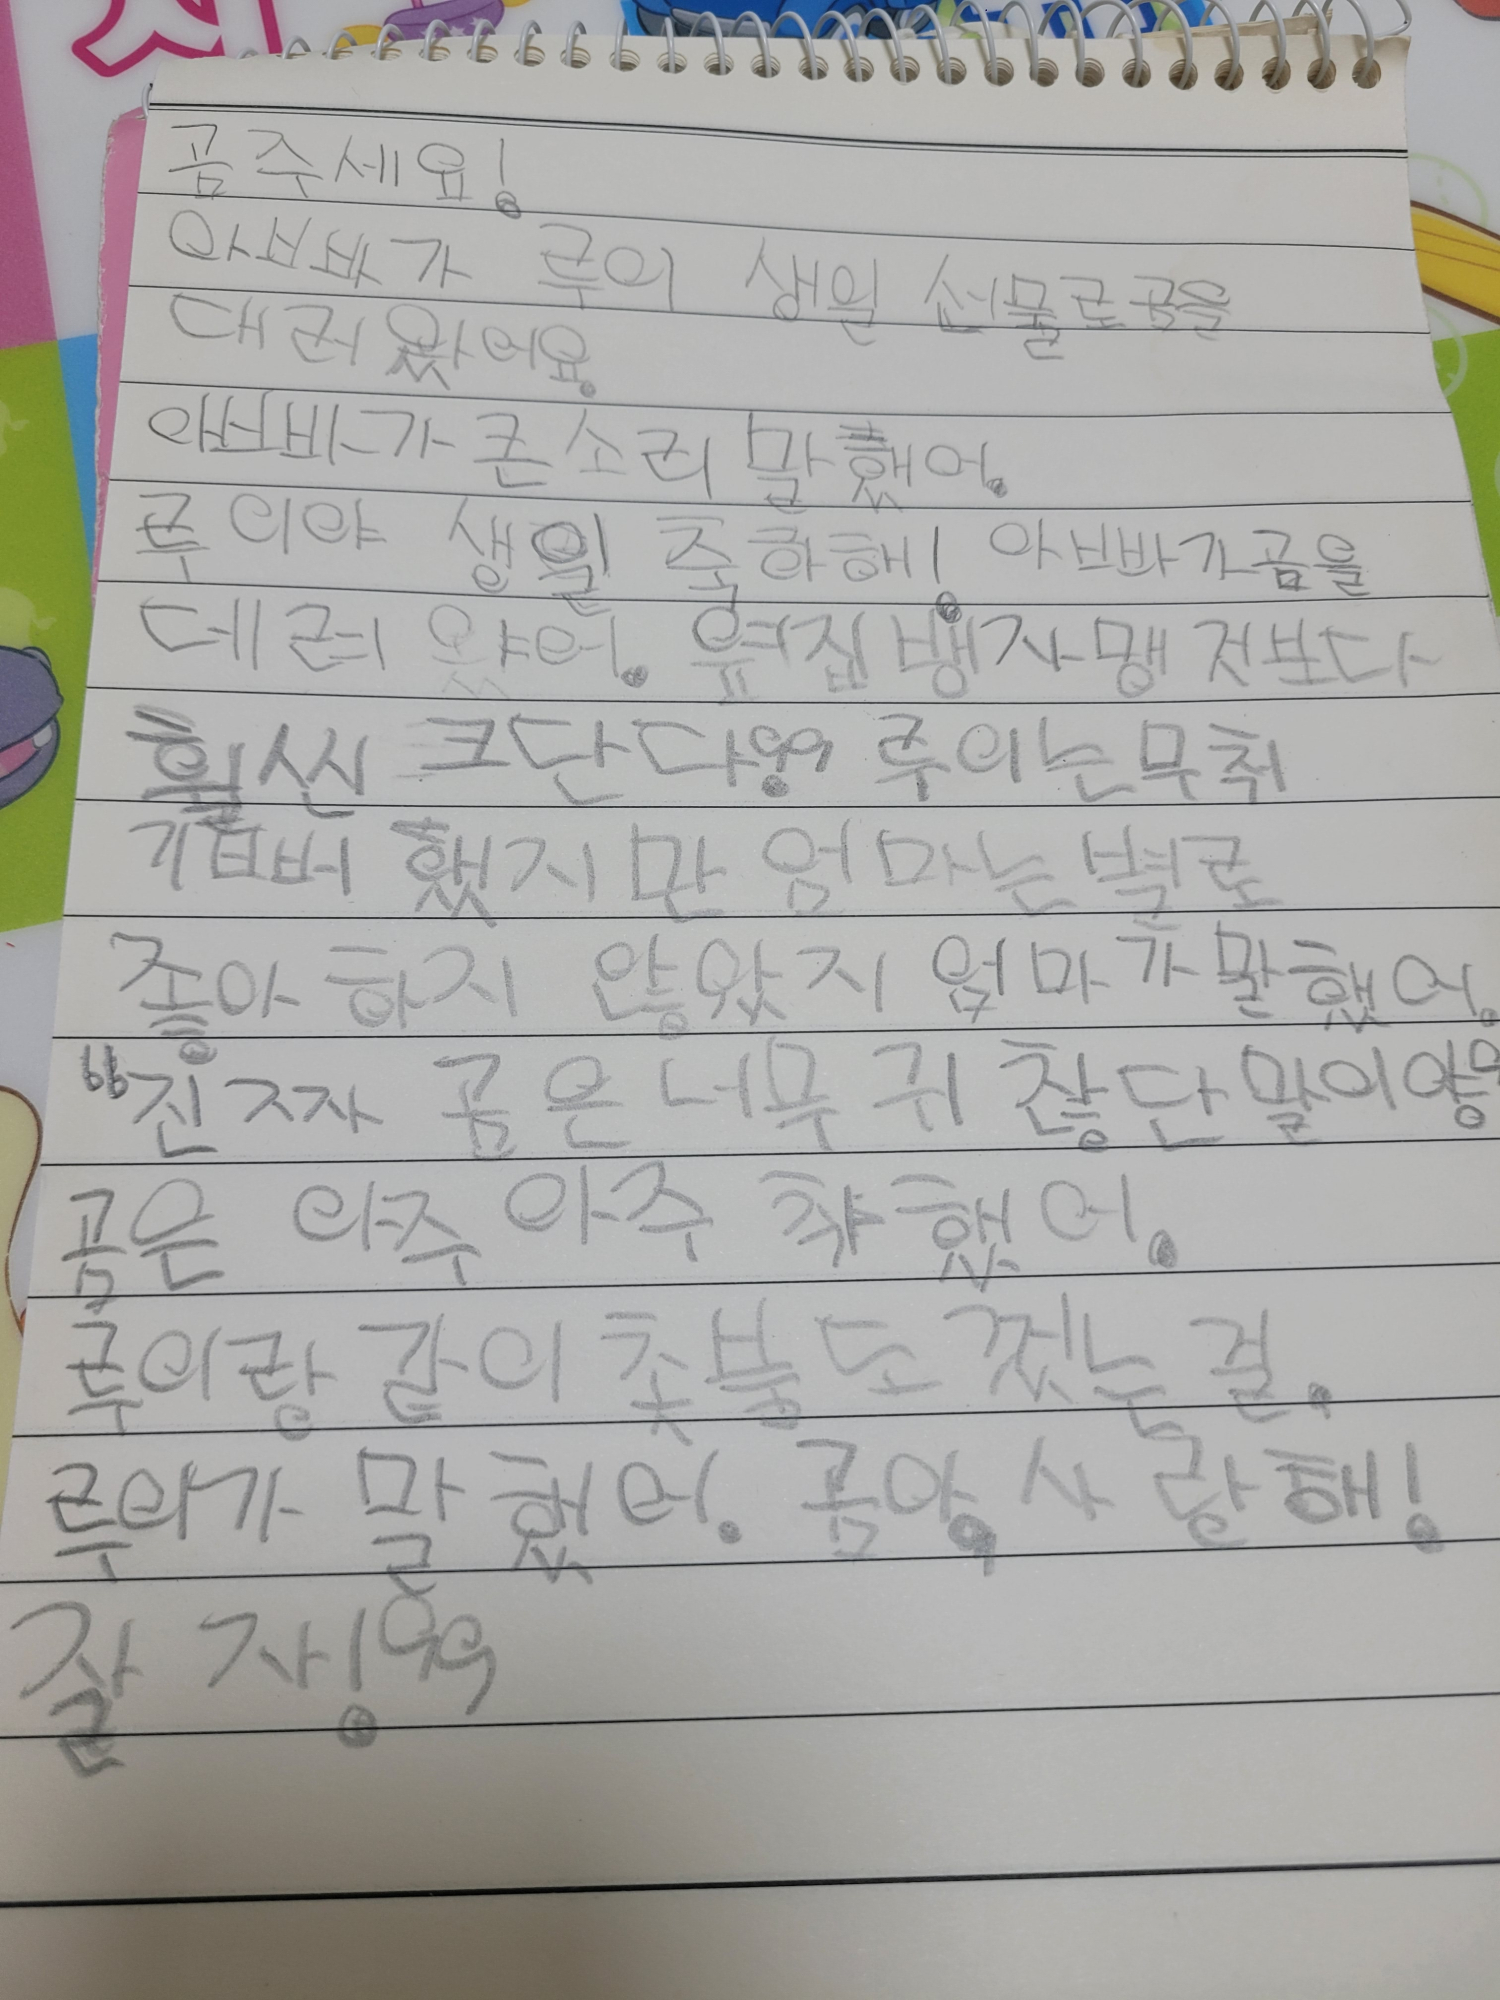 곰주세요!
아빠가 루이 생일 선물로곰을
대려왔어요.
아빠가 큰소리 말했어.
루이야 생일 축하해! 아빠가곰을
데려 왔어. 옆집 뱅자맹 것보다
훨씬 크단다." 루이는무척
기뻐 했지만 엄마는 별로
좋아 하지 않았지 엄마가말했어.
"진짜 곰은 너무 귀찮단 말이야"
곰은 아주 아주 착했어.
루이랑 같이 촛불도 껐는걸.
루이가 말했어. 곰아, 사랑해!
잘 자!"